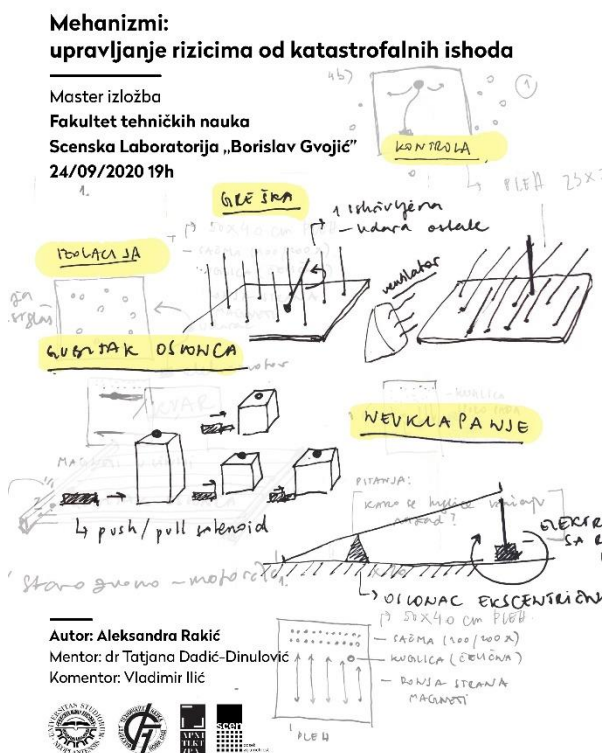 Mehanizmi:
upravljanje rizicima od katastrofalnih ishoda
Master izložba
Fakultet tehničkih nauka
Scenska Laboratorija „Borislav Gvojić”
24/09/2020 19h
4b)
1
KONTROLA
PLEH 25x
1.
GREŠKA
1 iskrivljena
- udara ostale
50x40 cm PLEH
- SAČMA
IZOLACIJA
ventilator
GUBITAK OSLONCA
KVAR
- KUGLICA
NEUKLAPANJE
MAGNETI
PITANJA:
KAKO SE kuglice vraćaju
nazad?
push/pull solenoid
ELEKTR
SA
staro gvono - motorče
1.
OSLONAC EKSCENTRIČN
50x40 cm PLEH.
- SAČMA (100/200 x)
- KUGLICA (ČELIČNA)
- DONJA STRANA
MAGNETI
PLEH
Autor: Aleksandra Rakić
Mentor: dr Tatjana Dadić-Dinulović
Komentor: Vladimir Ilić
UNIVERSITAS STUDIORUM
scen